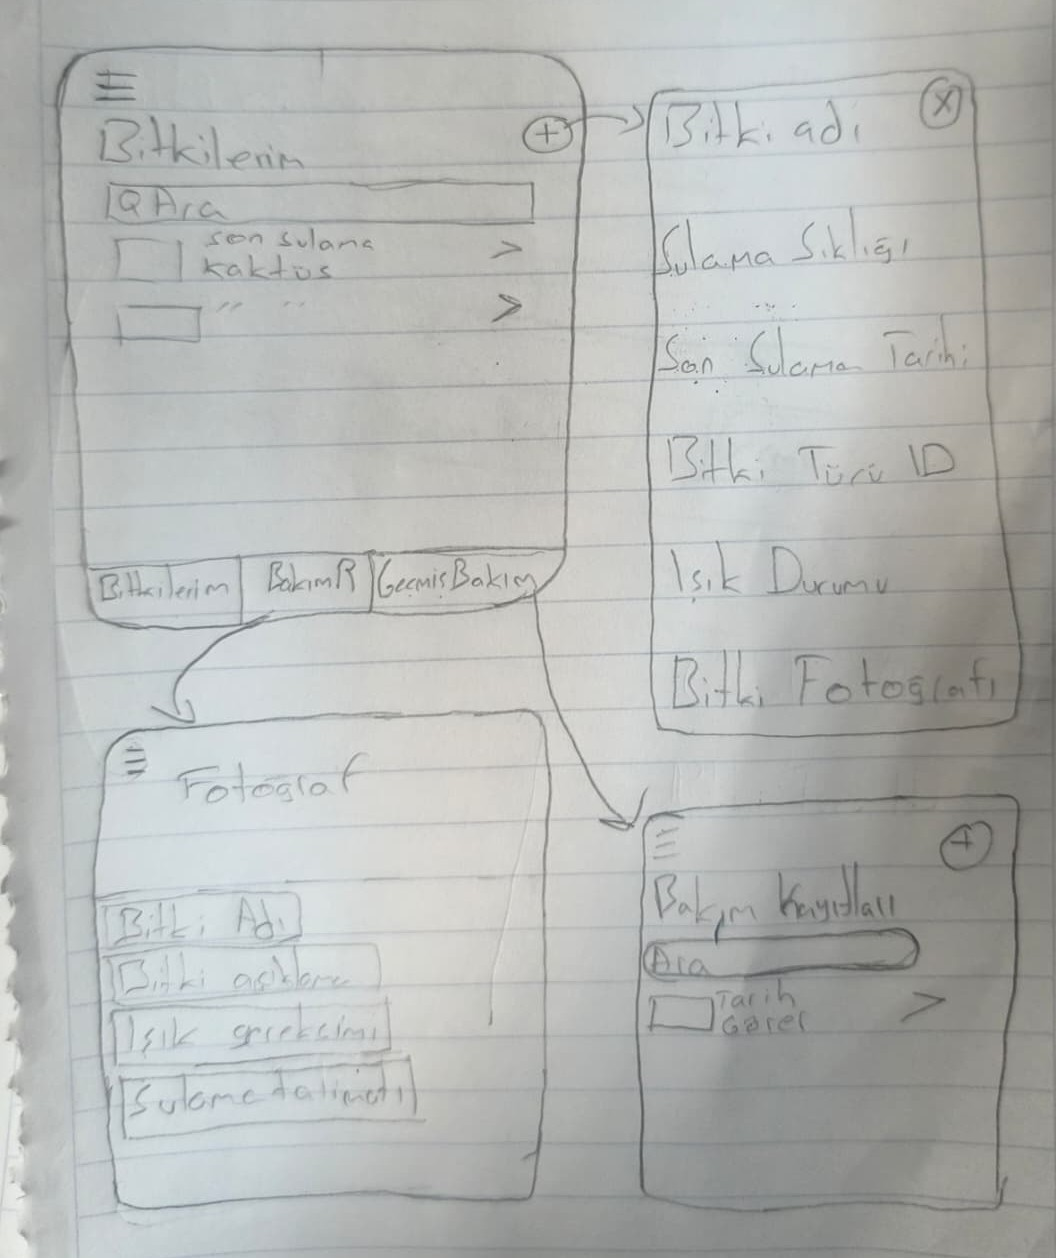 Bitkilerim
Ara
son sulama
kaktüs
" "
Bitkilerim
BakımR
Geçmiş Bakım
Bitki adı
Sulama Sıklığı
Son Sulama Tarihi
Bitki Türü ID
Işık Durumu
Bitki Fotoğrafı
Fotoğraf
Bitki Adı
Bitki açıklama
Işık gereksimi
Sulama talimatı
Bakım Kayıtları
Ara
Tarih
Görel